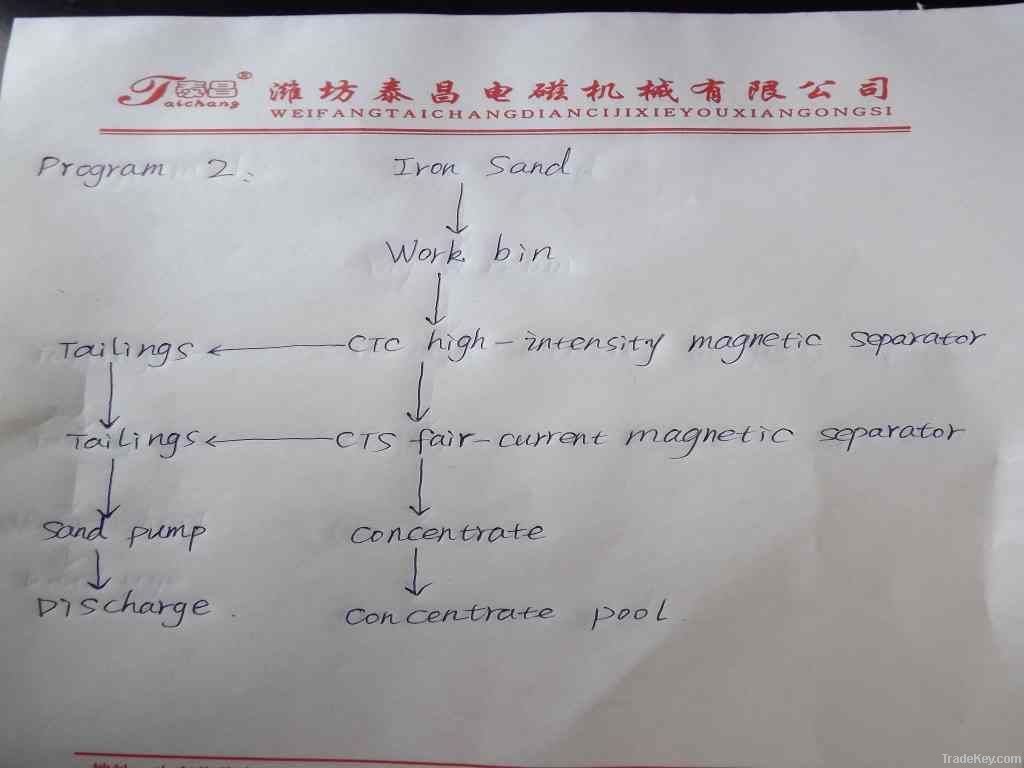 Taichang 泰昌 ® 潍坊泰昌电磁机械有限公司
WEIFANGTAICHANGDIANCIJIXIEYOUXIANGONGSI
Program 2: Iron Sand
Work bin
Tailings CTC high-intensity magnetic separator
Tailings CTS fair-current magnetic separator
Sand pump Concentrate
Discharge. Concentrate pool.
TradeKey.com